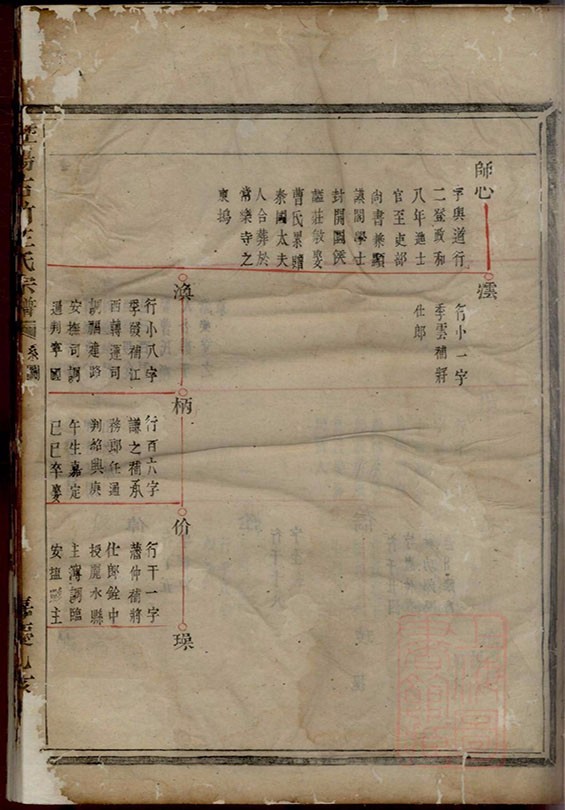 師心
字與道行
二登政和
八年進士
官至吏部
尚書兼顯
謨閣學士
封開國侯
謚莊敏娶
曹氏累贈
秦國太夫
人合葬於
常樂寺之
裏塢
澐
行小一字
季雲補將
仕郎
渙
行小八字
季
補江
西轉運司
調福建路
安撫司調
通判寧國
柄
行百六字
謙之補承
務郎任通
判紹興庚
午生嘉定
己巳卒娶
价
行千一字
藩仲補將
仕郎銓中
授麗水縣
主簿調臨
安
主
瑛
氏宗譜
系圖